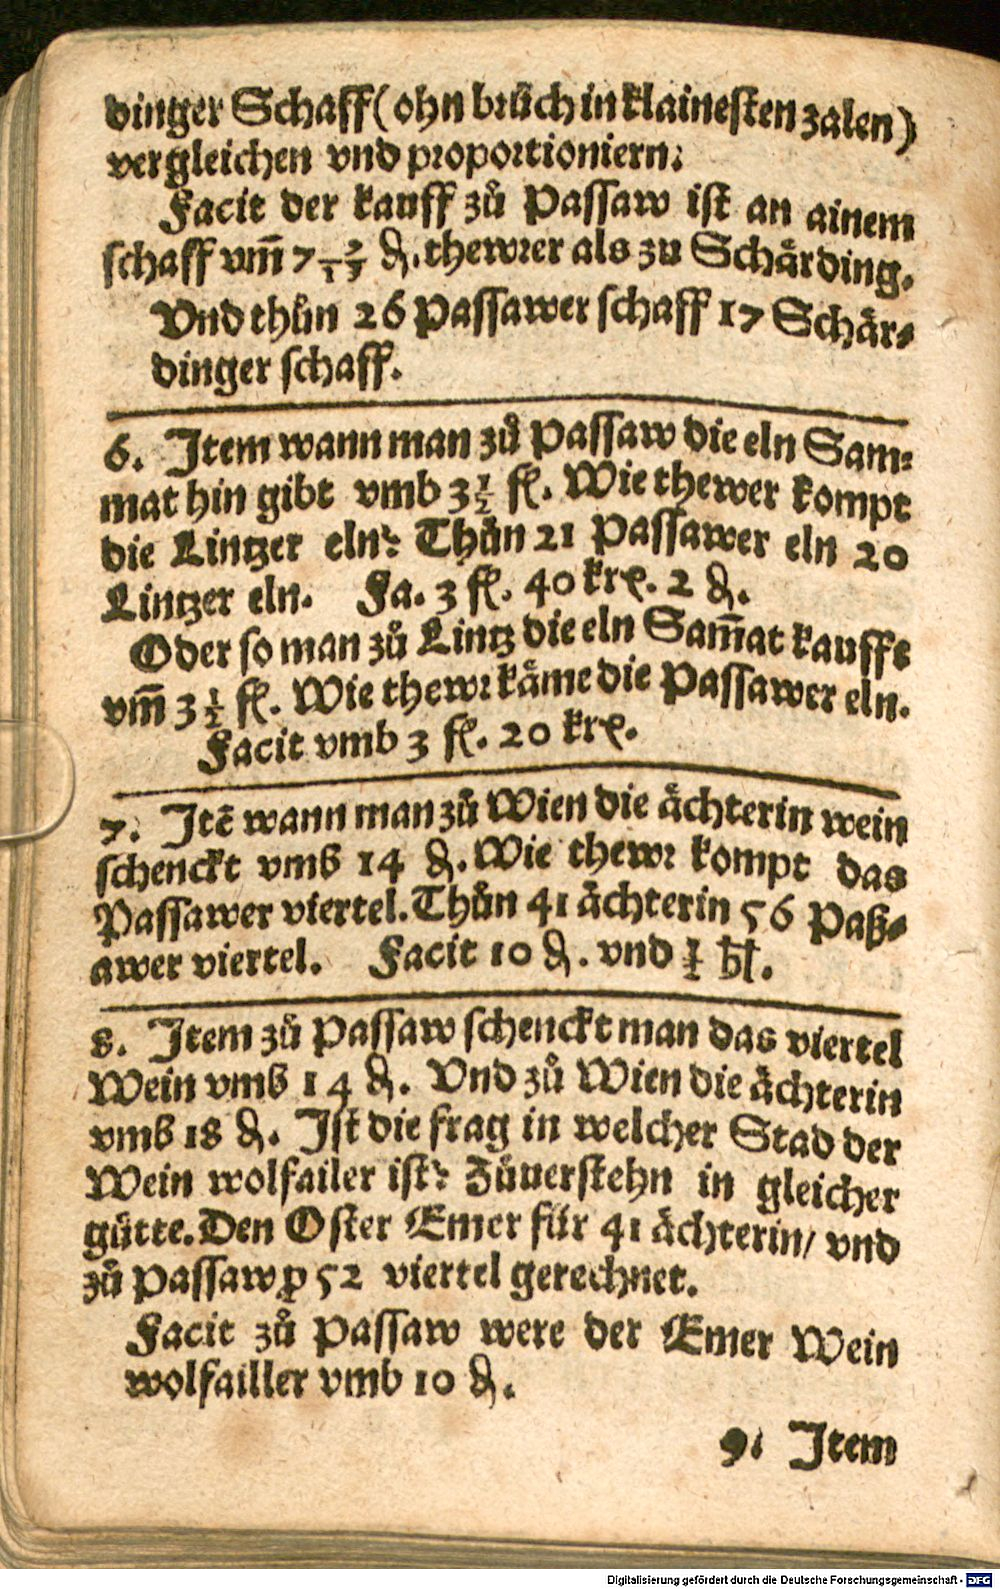 dinger Schaff (ohn brüch in klainesten zalen)
vergleichen vnd proportioniern:
Facit der kauff zů Passaw ist an ainem
schaff vm̄ 7 2/17 ₰. thewrer als zu Schärding.
Vnd thůn 26 Passawer schaff 17 Schär⸗
dinger schaff.
6. Item wann man zů Passaw die eln Sam⸗
mat hin gibt vmb 3 1/2 fl. Wie thewer kompt
die Lintzer eln? Thůn 21 Passawer eln 20
Lintzer eln. Fa. 3 fl. 40 krꝭ. 2 ₰.
Oder so man zů Lintz die eln Sam̄at kaufft
vm̄ 3 1/2 fl. Wie thewr käme die Passawer eln.
Facit vmb 3 fl. 20 krꝭ.
7. Itē wann man zů Wien die ächterin wein
schenckt vmb 14 ₰. Wie thewr kompt das
Passawer viertel. Thůn 41 ächterin 56 Paß⸗
awer viertel. Facit 10 ₰. vnd 1/2 hl.
8. Item zů Passaw schenckt man das viertel
Wein vmb 14 ₰. Vnd zů Wien die ächterin
vmb 18 ₰. Ist die frag in welcher Stad der
Wein wolfailer ist? Zůuerstehn in gleicher
gütte. Den Oster Emer für 41 ächterin/ vnd
zů Passaw ꝑ 52 viertel gerechnet.
Facit zů Passaw were der Emer Wein
wolfailler vmb 10 ₰.
9. Item
Digitalisierung gefördert durch die Deutsche Forschungsgemeinschaft - DFG